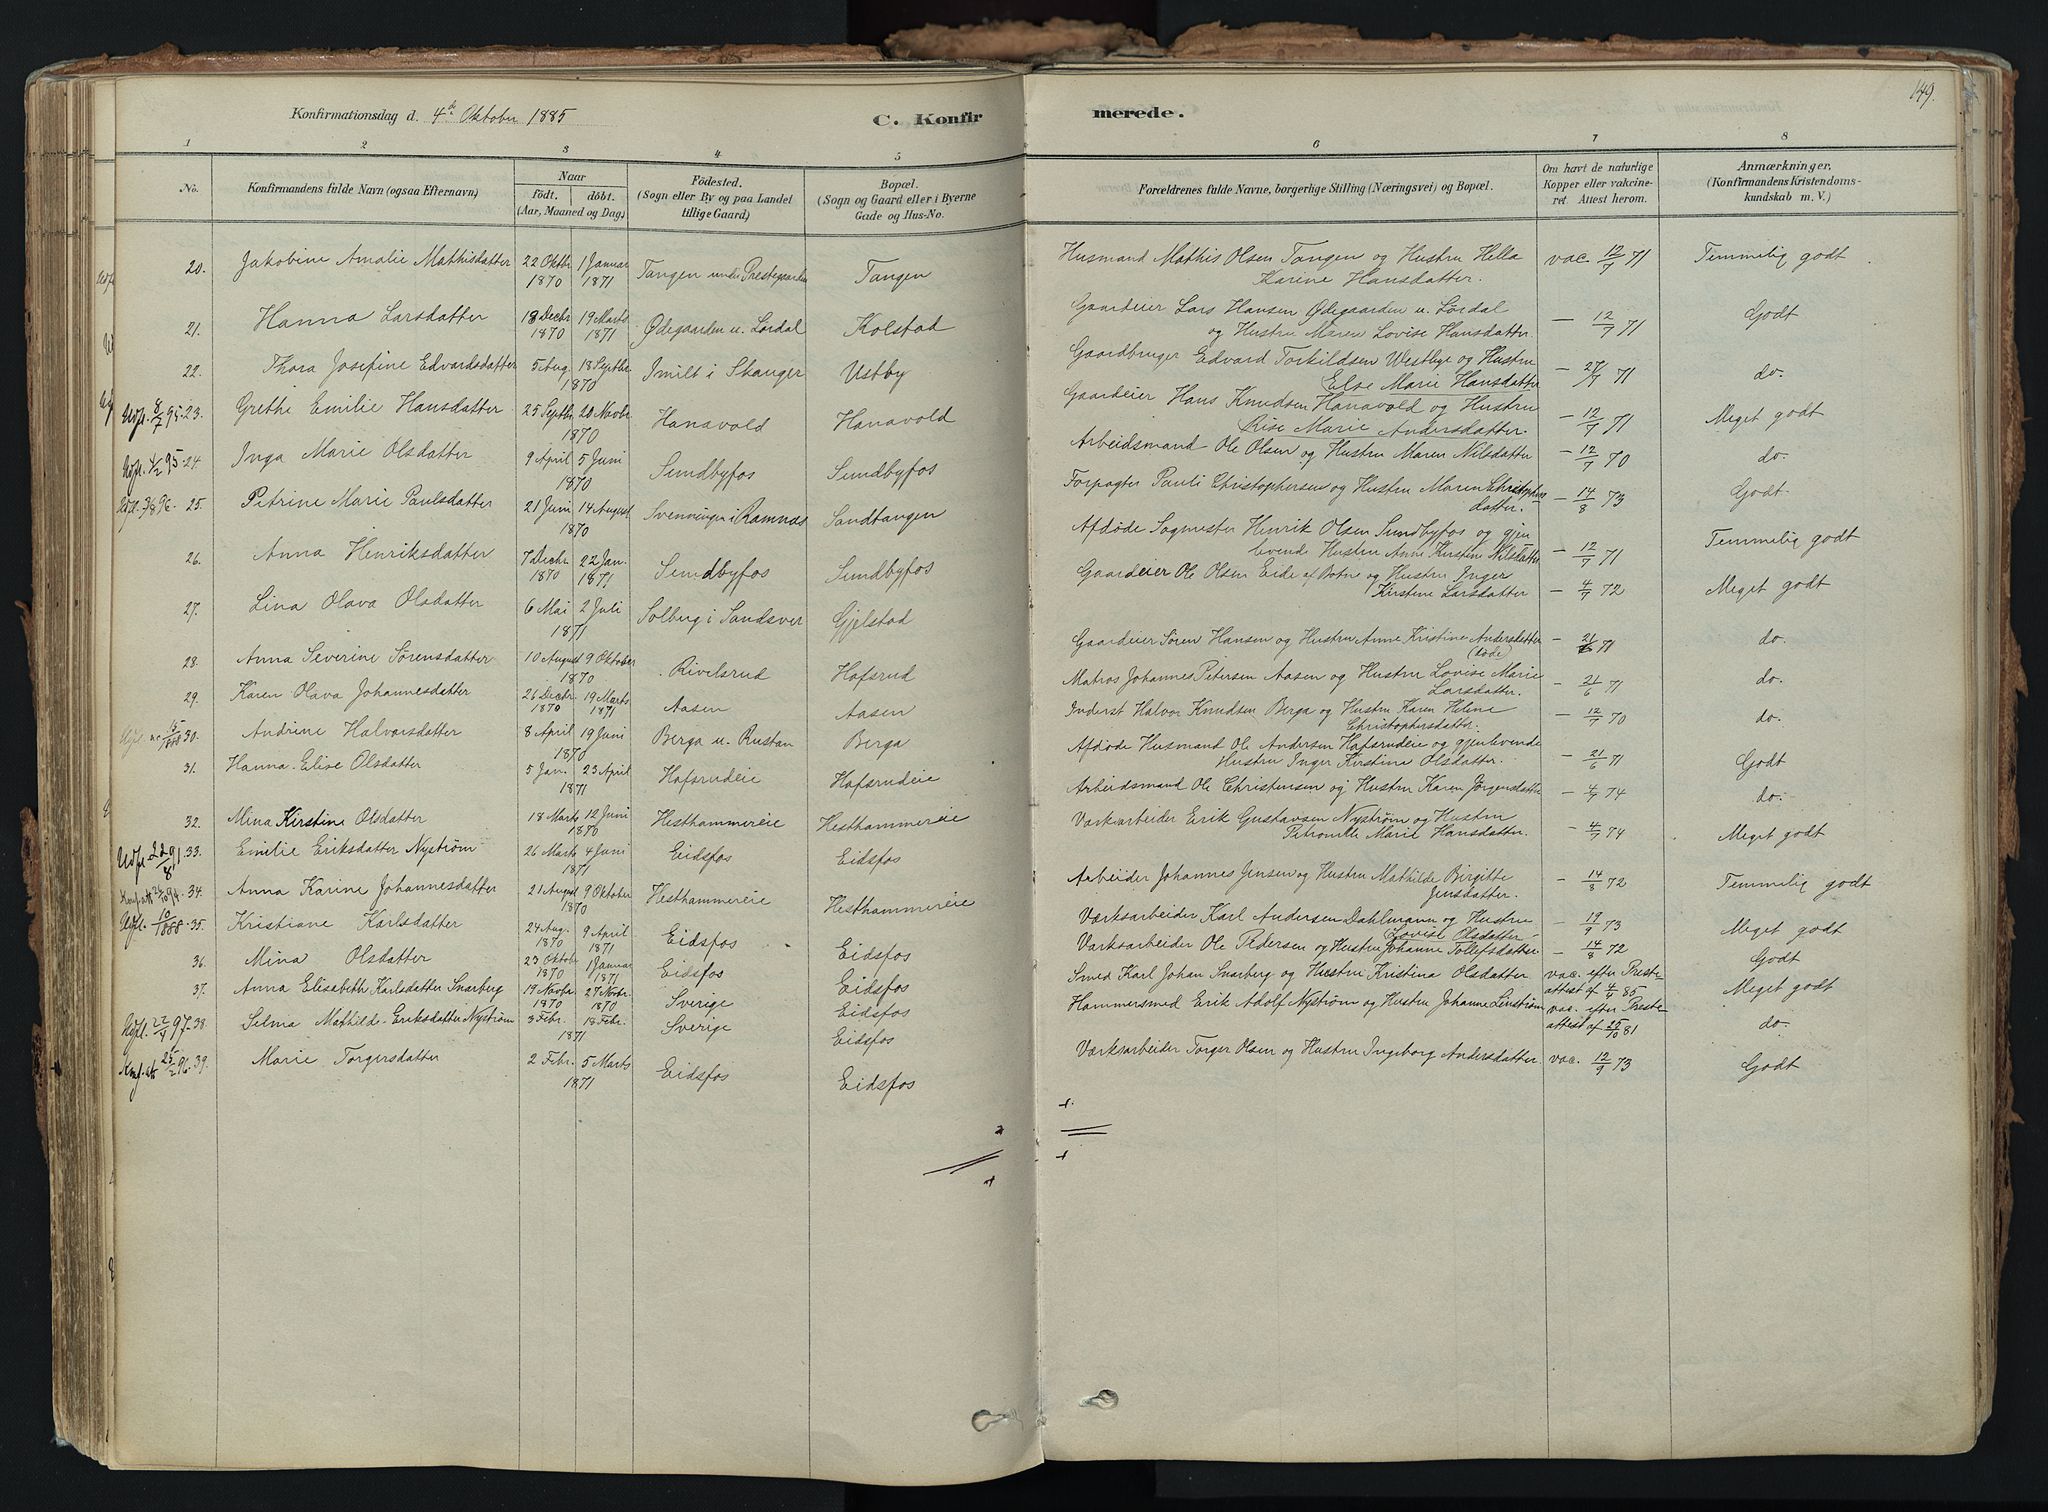 149.
Konfirmationsdag d. 4de Oktober 1885
C. Konfirmerede.
1 2 3 4 5 6 7 8
No. | Konfirmandens fulde Navn (ogsaa Efternavn) | Naar født. døbt. (Aar, Maaned og Dag) | Födested. (Sogn eller By og paa Landet tillige Gaard) | Bopæl. (Sogn og Gaard eller i Byerne Gade og Hus-No. | Forældrenes fulde Navne, borgerlige Stilling (Næringsvei) og Bopæl. | Om havt de naturlige Kopper eller vakcineret. Attest herom. | Anmærkninger, (Konfirmandens Kristendomskundskab m. V.)
20. Jakobine Amalie Mathisdatter | 22 Oktbr 1870 | 1 Januar 1871 | Tangen under Prestegaarden | Tangen | Husmand Mathis Olsen Tangen og Hustru Hella Karine Hansdatter. | vac. 12/7 71 | Temmelig godt
21. Hanna Larsdatter | 18 Decbr 1870 | 19 Marts 1871 | Ødegaarden u. Lørdal | Kolstad | Gaardeier Lars Hansen Ødegaarden u. Lørdal og Hustru Maren Lovise Hansdatter | – 12/7 71 | Godt
22. Thora Josefine Edvardsdatter | 5 Aug. 18 Septbr. 1870 | Imilt i Skanger | Ustby | Gaardbruger Edvard Torkildsen Westbye og Hustru Else Marie Hansdatter | – 27/7 71 | do.
Udfl. 8/7 95. 23. Grethe Emilie Hansdatter | 25 Septbr 20 Novbr. 1870 | Hanavold | Hanavold | Gaardeier Hans Knudsen Hanavold og Hustru Rise Marie Andersdatter. | – 12/7 71 | Meget godt
Udfl. 4/2 95. 24. Inga Marie Olsdatter | 9 April 5 Juni 1870 | Sundbyfos | Sundbyfos | Arbeidsmand Ole Olsen og Hustru Maren Nilsdatter | – 12/7 70 | do.
25. Petrine Marie Paulsdatter | 21 Juni 14 August 1870 | Svenningen i Ramnæs | Sandtangen | Forpagter Pauli Christophersen og Hustru Maren Christophersdatter. | – 14/8 73 | Godt.
26. Anna Henriksdatter | 7 Decbr 1870 | 22 Jan. 1871 | Sundbyfos | Sundbyfos | Afdøde Sagmester Henrik Olsen Sundbyfos og gjenlevende Hustru Anne Kirstine Nilsdatter | – 12/7 71 | Temmelig godt
27. Lina Olava Olsdatter | 6 Mai 2 Juli 1871 | Solberg i Sandsver | Gjelstad | Gaardeier Ole Olsen Eide af Botne og Hustru Inger Kirstine Larsdatter | – 4/7 72 | Meget godt
28. Anna Severine Sørensdatter | 10 August 9 Oktober 1870 | Rivelsrud | Hafsrud | Gaardeier Søren Hansen og Hustru Anne Kristine Andersdatter (døde) | – 21/6 71 | do.
29. Karen Olava Johannesdatter | 26 Decbr. 1870 | 19 Marts 1871 | Aasen | Aasen | Matros Johannes Petersen Aasen og Hustru Lovise Marie Larsdatter. | – 21/6 71 | do.
30. Andrine Halvorsdatter | 8 April 19 Juni 1870 | Berga u. Rustan | Berga | Inderst Halvor Knudsen Berga og Hustru Karen Helene Christophersdatter. | – 12/7 70 | do.
31. Hanna Elise Olsdatter | 5 Jan. 23 April 1871 | Hafsrudeie | Hafsrudeie | Afdøde Husmand Ole Andersen Hafsrudeie og gjenlevende Hustru Inger Kirstina Olsdatter. | – 21/6 71 | Godt
32. Mina Kirstine Olsdatter | 18 Marts 12 Juni 1870 | Hesthammereie | Hesthammereie | Arbeidsmand Ole Christensen og Hustru Karen Jørgensdatter | – 4/7 74 | do.
Udfl. 22/8 91. 33. Emilie Eriksdatter Nystrøm | 26 Marts 4 Juni 1871 | Eidsfos | Eidsfos | Værkarbeider Erik Gustavsen Nystrøm og Hustru Petronille Marie Hansdatter. | – 4/7 74 | Meget godt
34. Anna Karine Johannesdatter | 21 August 9 Oktober 1870 | Hesthammereie | Hesthammereie | Arbeider Johannes Jensen og Hustru Mathilde Birgitte Jensdatter. | – 14/8 72 | Temmelig godt
Udfl. 10/10 1888. 35. Kristiane Karlsdatter | 24 Aug. 1870 | 9 April 1871 | Eidsfos | Eidsfos | Værksarbeider Karl Andersen Dahlmann og Hustru Lovise Olsdatter | – 19/9 73 | Meget godt
36. Mina Olsdatter | 23 Oktobr 1870 | 1 Januar 1871 | Eidsfos | Eidsfos | Værksarbeider Ole Pedersen og Hustru Johanne Tollefsdatter | – 14/8 72 | Godt
37. Anna Elisabeth Karlsdatter Snarberg | 19 Novbr 1870 | 27 Novbr. 1870 | Sverige | Eidsfos | Smed Karl Johan Snarberg og Hustru Kristina Olsdatter | vac. efter Presteattest af 4/9 85 | Meget godt
Udfl. 22/4 97. 38. Selma Mathilde Eriksdatter Nystrøm | 3 Febr. 18 Febr. 1871 | Sverige | Eidsfos | Hammersmed Erik Adolf Nystrøm og Hustru Johanne Linstrøm | vac. efter Presteattest af 25/10 81 | do.
39. Marie Torgersdatter | 2 Febr. 5 Marts 1871 | Eidsfos | Eidsfos | Værksarbeider Torger Olsen og Hustru Ingeborg Andersdatter | vac. 12/9 73 | Godt